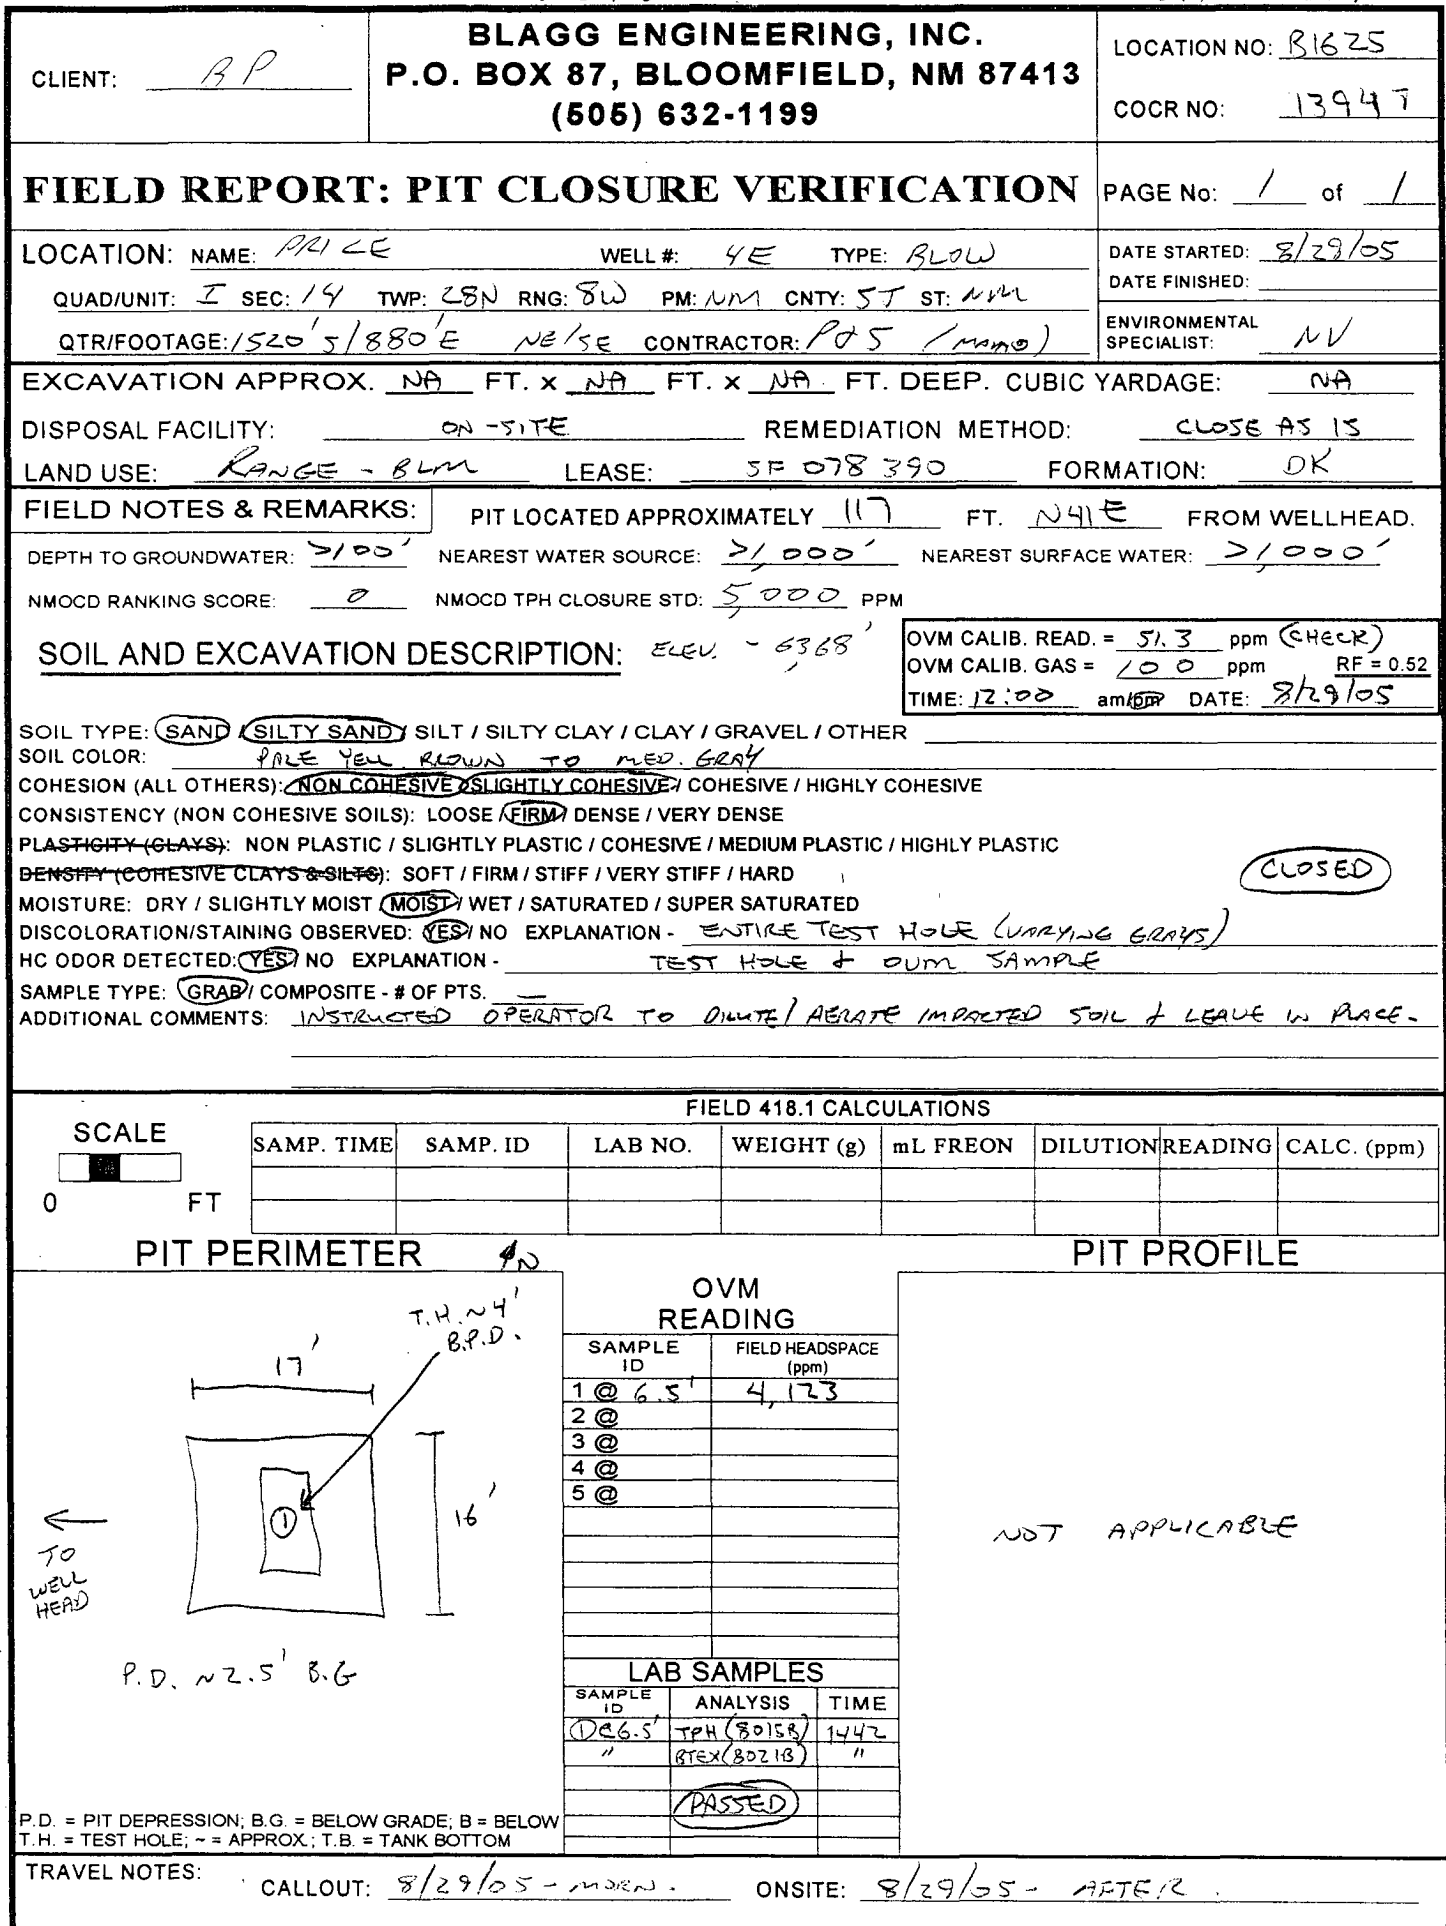 CLIENT: BP
BLAGG ENGINEERING, INC.
P.O. BOX 87, BLOOMFIELD, NM 87413
(505) 632-1199
LOCATION NO: B1625
COCR NO: 13947
FIELD REPORT: PIT CLOSURE VERIFICATION
PAGE No: 1 of 1
LOCATION: NAME: PRICE WELL #: 4E TYPE: BLOW
QUAD/UNIT: I SEC: 14 TWP: 28N RNG: 8W PM: NM CNTY: SJ ST: NM
QTR/FOOTAGE: 1520'S/880'E NE/SE CONTRACTOR: P&S
DATE STARTED: 8/29/05
DATE FINISHED:
ENVIRONMENTAL
SPECIALIST: NV
EXCAVATION APPROX. NA FT. x NA FT. x NA FT. DEEP. CUBIC YARDAGE: NA
DISPOSAL FACILITY: ON-SITE REMEDIATION METHOD: CLOSE AS IS
LAND USE: RANGE - BLM LEASE: SF 078390 FORMATION: DK
FIELD NOTES & REMARKS: PIT LOCATED APPROXIMATELY 117 FT. N41E FROM WELLHEAD.
DEPTH TO GROUNDWATER: >100' NEAREST WATER SOURCE: >1,000' NEAREST SURFACE WATER: >1,000'
NMOCD RANKING SCORE: 0 NMOCD TPH CLOSURE STD: 5,000 PPM
SOIL AND EXCAVATION DESCRIPTION: ELEV. - 6,368'
OVM CALIB. READ. = 51.3 ppm (CHECK)
OVM CALIB. GAS = 100 ppm RF = 0.52
TIME: 12:00 am/pm DATE: 8/29/05
SOIL TYPE: SAND / SILTY SAND / SILT / SILTY CLAY / CLAY / GRAVEL / OTHER
SOIL COLOR: PALE YELL. BROWN TO MED. GRAY
COHESION (ALL OTHERS): NON COHESIVE / SLIGHTLY COHESIVE / COHESIVE / HIGHLY COHESIVE
CONSISTENCY (NON COHESIVE SOILS): LOOSE / FIRM / DENSE / VERY DENSE
PLASTICITY (CLAYS): NON PLASTIC / SLIGHTLY PLASTIC / COHESIVE / MEDIUM PLASTIC / HIGHLY PLASTIC
DENSITY (COHESIVE CLAYS & SILTS): SOFT / FIRM / STIFF / VERY STIFF / HARD
CLOSED
MOISTURE: DRY / SLIGHTLY MOIST / MOIST / WET / SATURATED / SUPER SATURATED
DISCOLORATION/STAINING OBSERVED: YES / NO EXPLANATION - ENTIRE TEST HOLE (VARYING GRAYS)
HC ODOR DETECTED: YES / NO EXPLANATION - TEST HOLE & OVM SAMPLE
SAMPLE TYPE: GRAB / COMPOSITE - # OF PTS. —
ADDITIONAL COMMENTS: INSTRUCTED OPERATOR TO DILUTE/AERATE IMPACTED SOIL & LEAVE IN PLACE.
FIELD 418.1 CALCULATIONS
SCALE
0 FT
SAMP. TIME SAMP. ID LAB NO. WEIGHT (g) mL FREON DILUTION READING CALC. (ppm)
PIT PERIMETER N
PIT PROFILE
T.H. ~ 4'
B.P.D.
17'
16'
1
TO
WELL
HEAD
P.D. ~ 2.5' B.G
OVM
READING
SAMPLE
ID
FIELD HEADSPACE
(ppm)
1 @ 6.5' 4,123
2 @
3 @
4 @
5 @
NOT APPLICABLE
LAB SAMPLES
SAMPLE
ID
ANALYSIS TIME
①@6.5' TPH (8015B) 1442
" BTEX (8021B) "
PASSED
P.D. = PIT DEPRESSION; B.G. = BELOW GRADE; B = BELOW
T.H. = TEST HOLE; ~ = APPROX.; T.B. = TANK BOTTOM
TRAVEL NOTES: CALLOUT: 8/29/05 - MORN. ONSITE: 8/29/05 - AFTER.